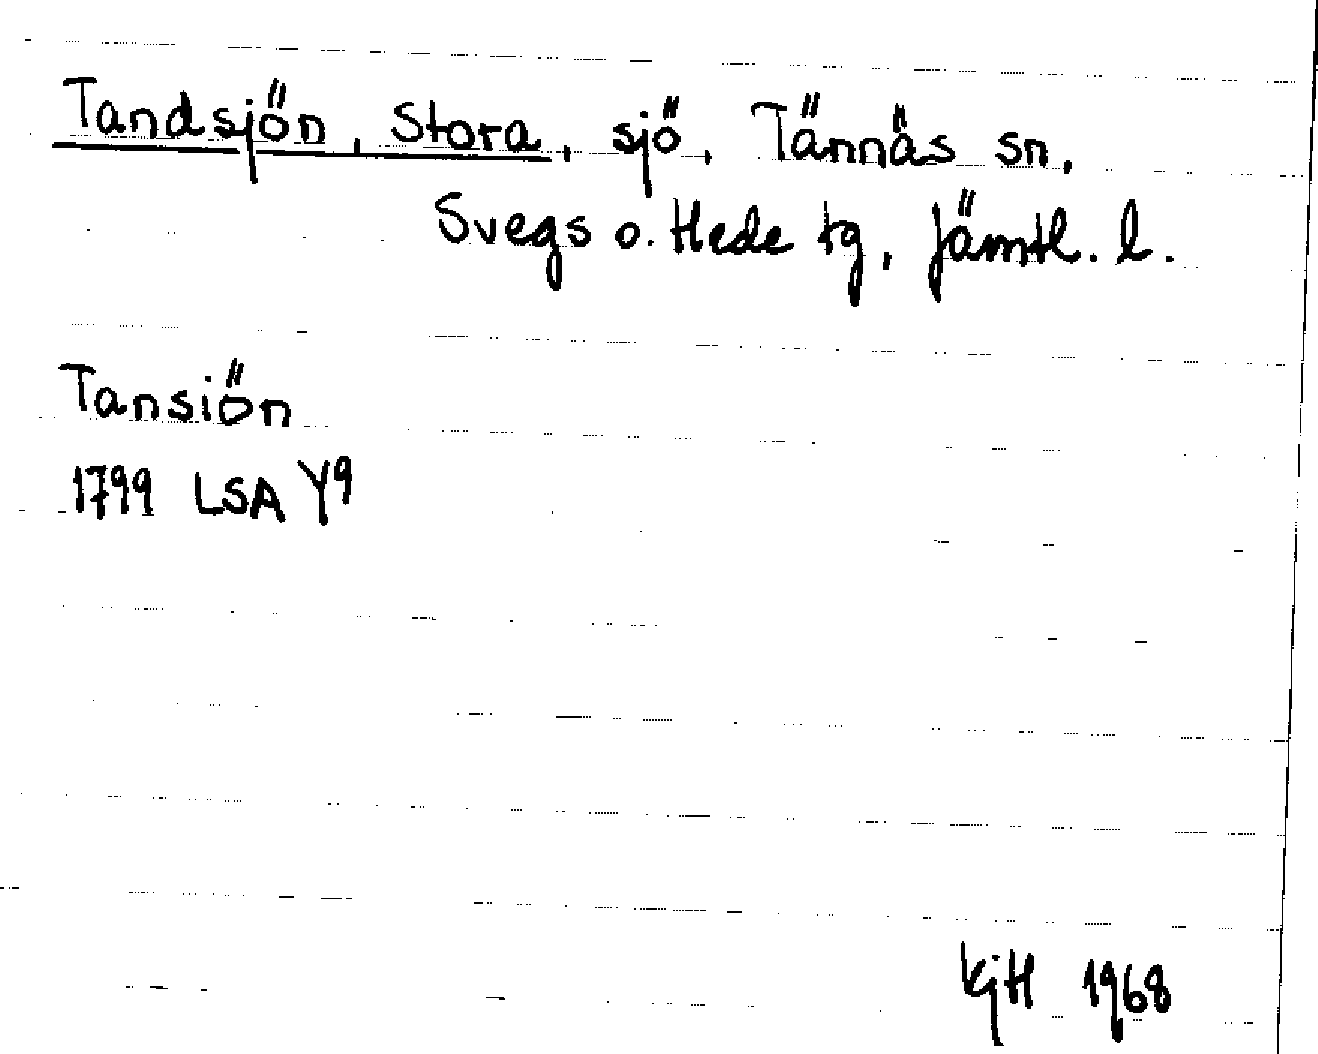 Tandsjön, Stora, sjö, Tännäs sn,
Svegs o. Hede tg, Jämtl. l.
Tansiön
1799 LSA Y9
KjH 1968